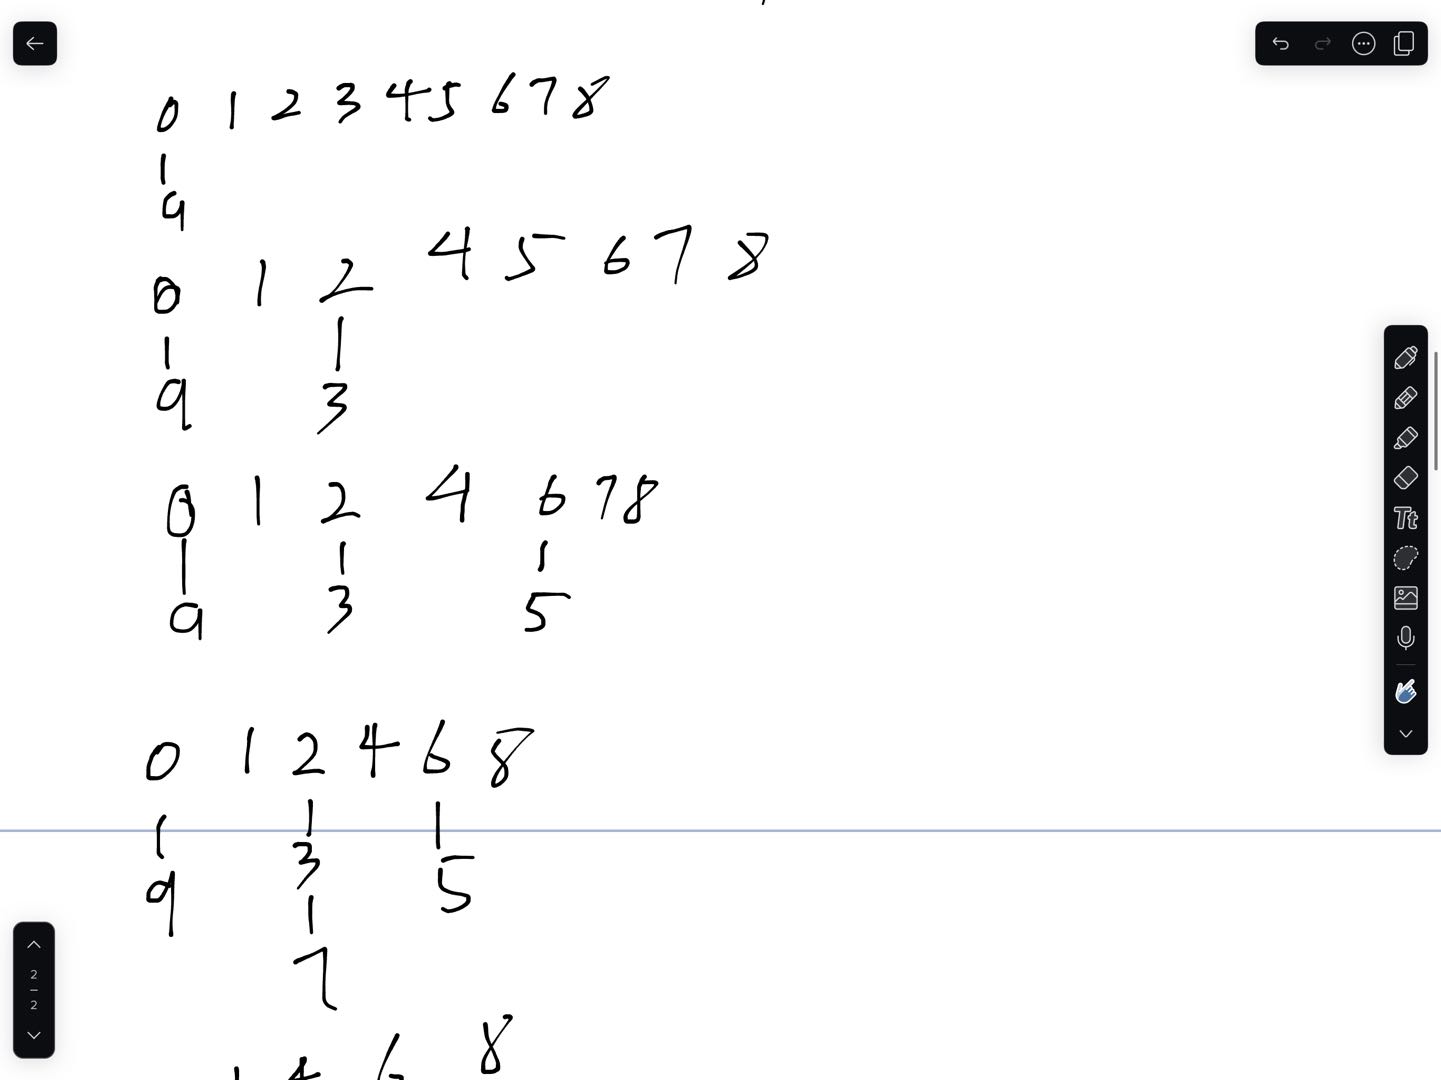 0 1 2 3 4 5 6 7 8
9
0 1 2 4 5 6 7 8
9 3
0 1 2 4 6 7 8
9 3 5
0 1 2 4 6 8
9 3 5
7
1 4 6 8
Tt
2
2